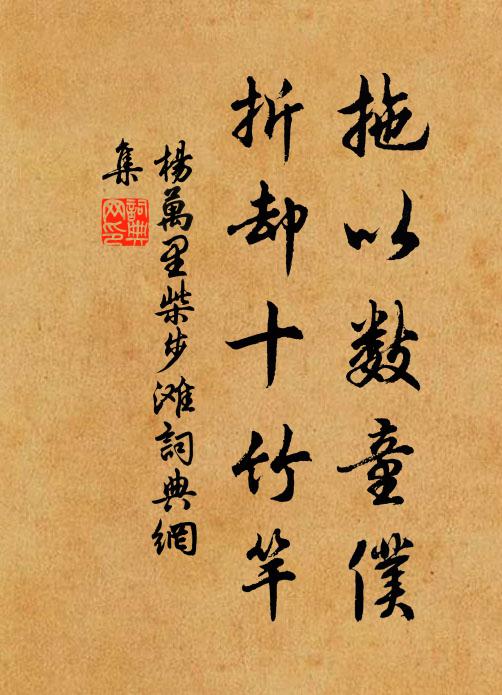 拖以数童僕
折却十竹竿
楊萬里柴步滩詞典網
集
詞典
网印